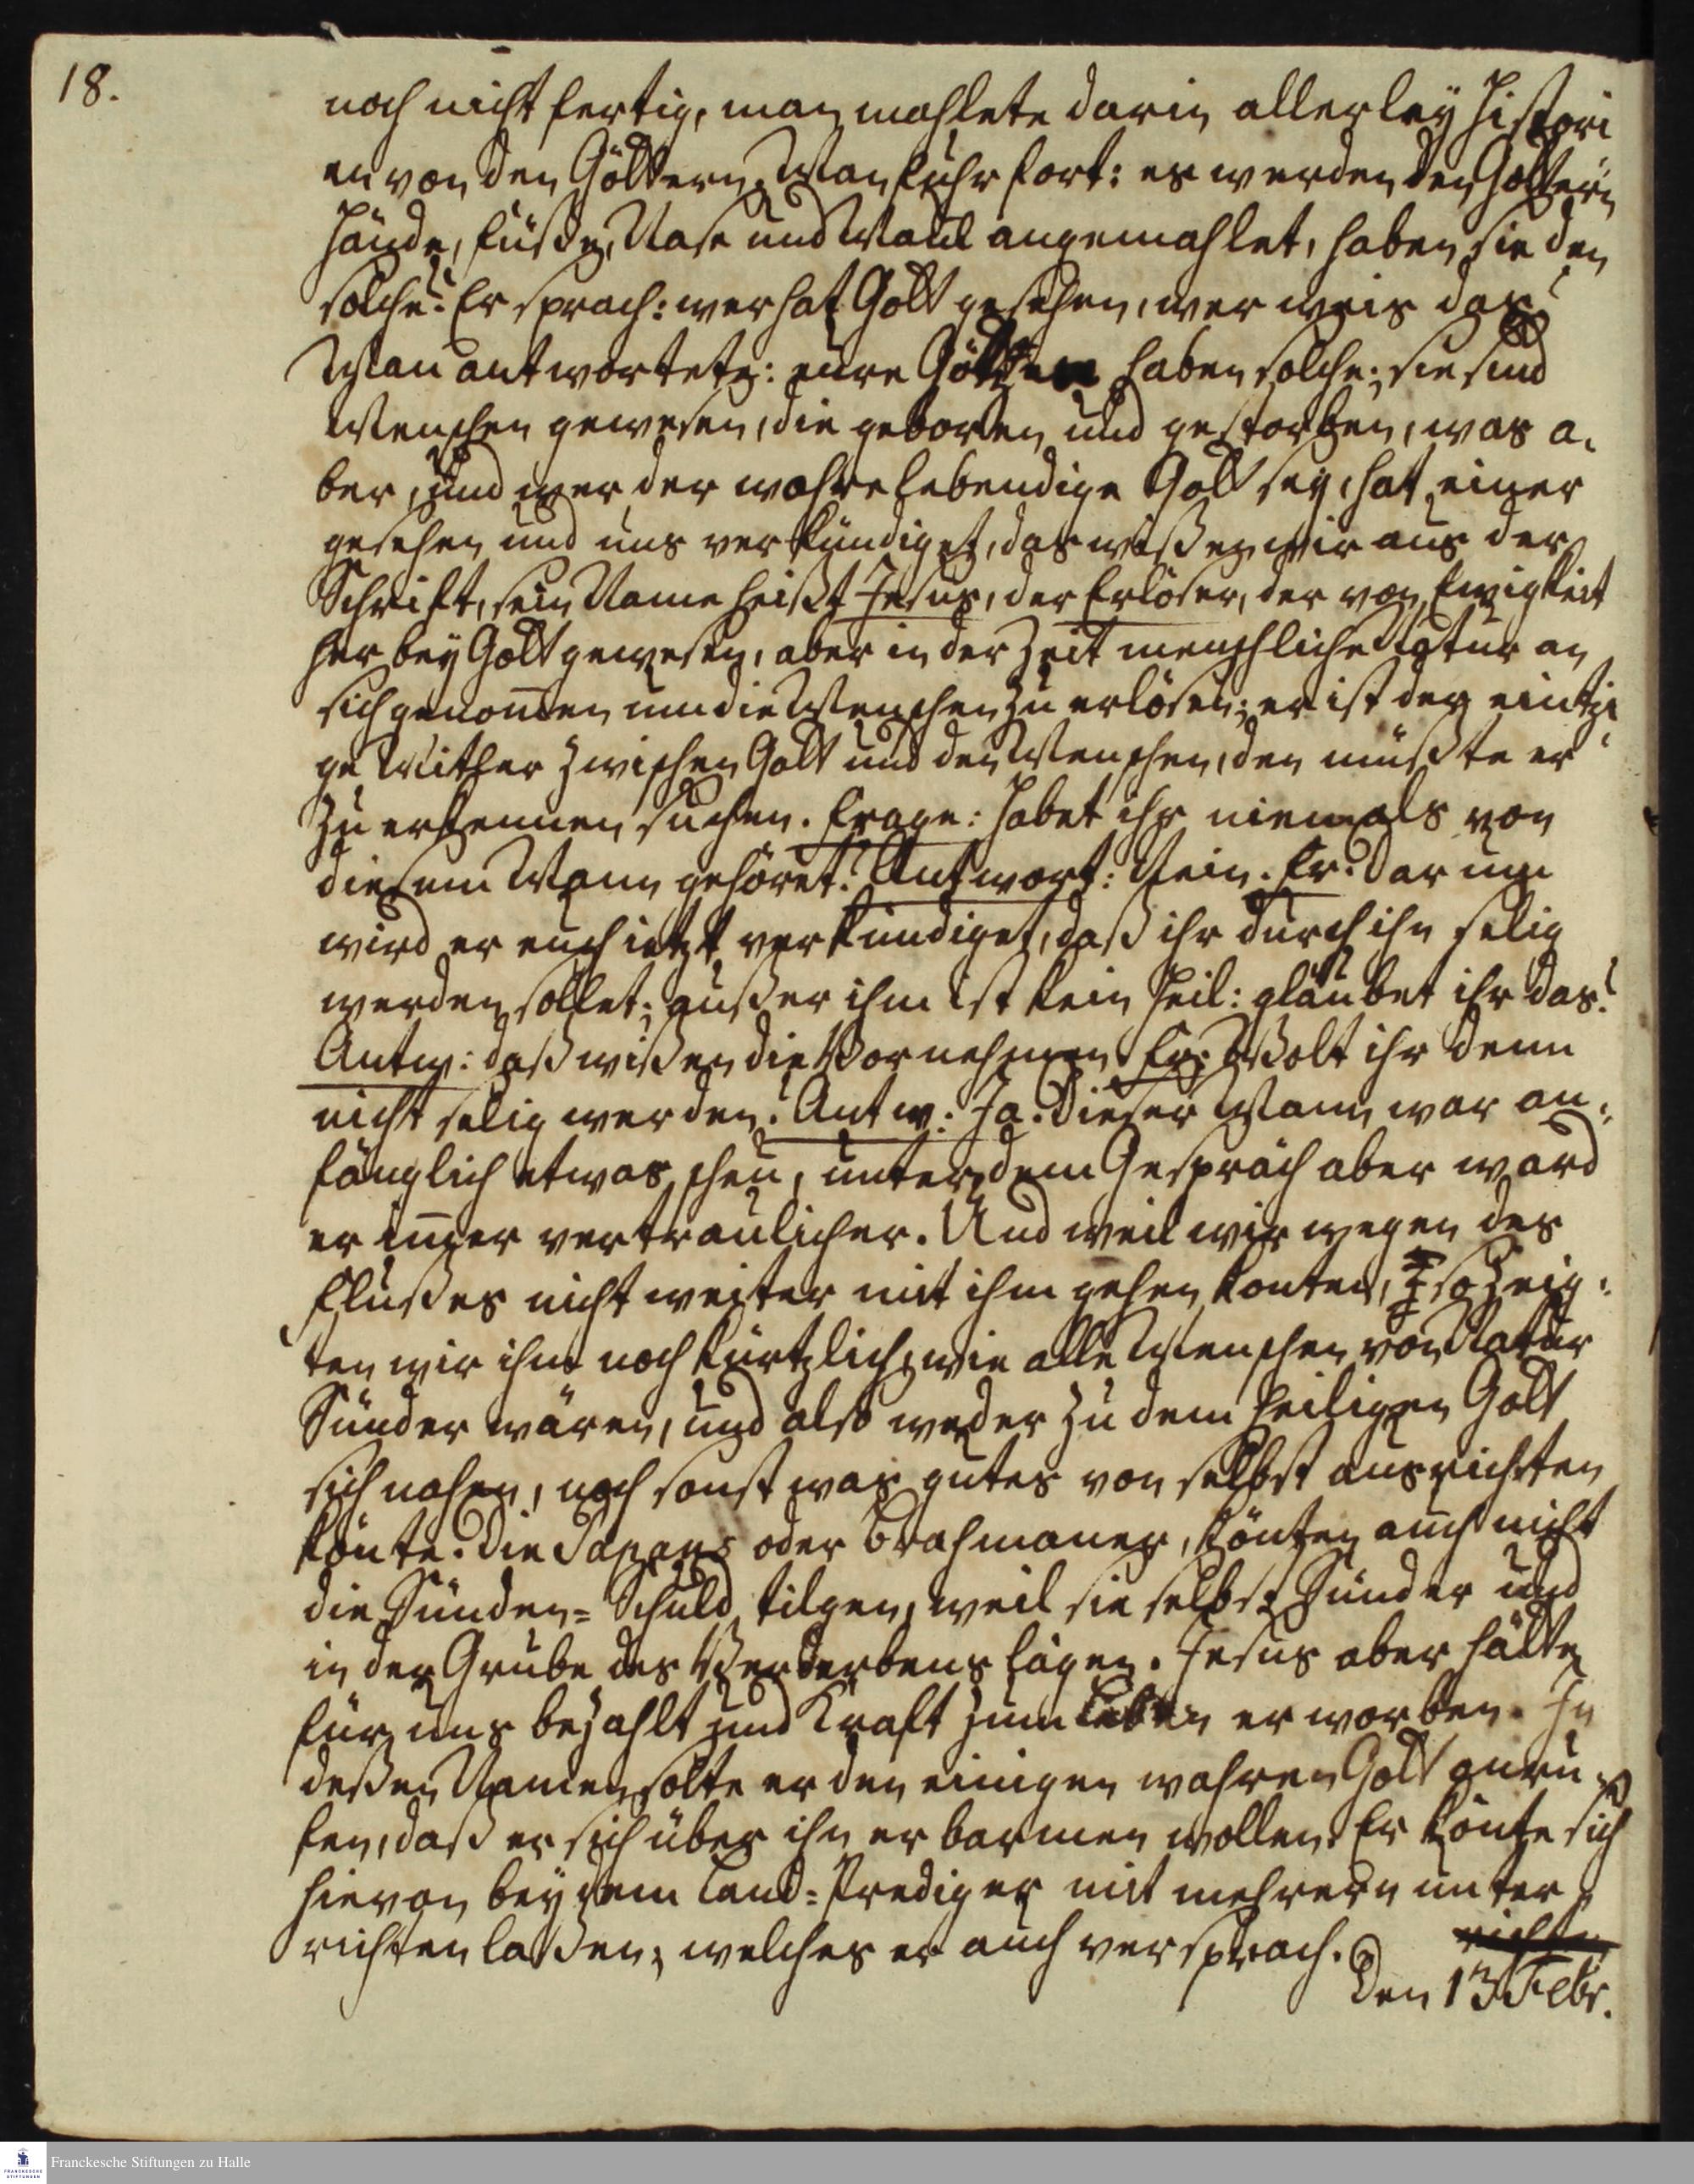 18.
noch nicht fertig, man mahlete darin allerley Histori
en von den Göttern. Man fuhr fort: es werden den Göttern
Hände, Füße, Nase und Maul angemahlet, haben sie den
solche? Er sprach: wer hat Gott gesehen, wer weis das?
Man antwortete: eure Götter haben solche; sie sind
Menschen gewesen, die geboren und gestorben, was a,
ber, und wer der wahre lebendige Gott sey, hat einer
gesehen und uns verkündiget, das wißen wir aus der
Schrift, sein Name heißt Jesus, der Erlöser, der von Ewigkeit
her bey Gott gewesen, aber in der Zeit menschliche Natur an
sich genom̄en um die Menschen zu erlösen; er ist der eintzi
ge Mitler zwischen Gott und den Menschen, den müßte er
zu erkennen suchen. Frage: Habet ihr niemals von
diesem Mann gehöret? Antwort: Nein. Fr. Darum
wird er euch ietzt verkündiget, daß ihr durch ihn selig
werden sollet; außer ihm ist kein Heil: gläubet ihr das?
Antw: daß wißen die Vornehmen. Fr: Wolt ihr denn
nicht selig werden? Antw: Ja. Dieser Mann war an,
fänglich etwas scheu, unter dem Gespräch aber ward
er im̄er vertraulicher. Und weil wir wegen des
Flußes nicht weiter mit ihm gehen konten, so zeig,
ten wir ihm noch kürtzlich, wie alle Menschen von Natur
Sünder wären, und also weder zu dem heiligen Gott
sich nahen, noch sonst was gutes von selbst ausrichten
könte. Die Papans oder Brahmaner, könten auch nicht
die Sünden=Schuld tilgen, weil sie selbst Sünder und
in der Grube des Verderbens lägen. Jesus aber hätte
für uns bezahlt und Kraft zum Leben erworben. In
deßen Namen solte er den einigen wahren Gott anru
fen, daß er sich über ihn erbarmen wollen. Er könte sich
hievon bey dem Land=Prediger mit mehrern unter
richten laßen, welches er auch versprach.
richten
Den 13 Febr.
Franckesche Stiftungen zu Halle
FRANCKESCHE STIFTUNGEN